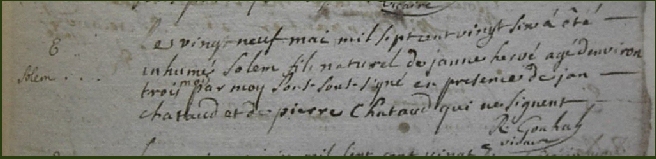 Vicaire
E
Solem
Le vingt neuf mai mil sept cent vingt six à été
inhumé Solem fils naturel de janne hervé agé denviron
trois mois par moy sous-signé en presence de jan
chataud et de pierre Chataud qui ne signent
R Gouhal
vicaire
mil sept cent vingt